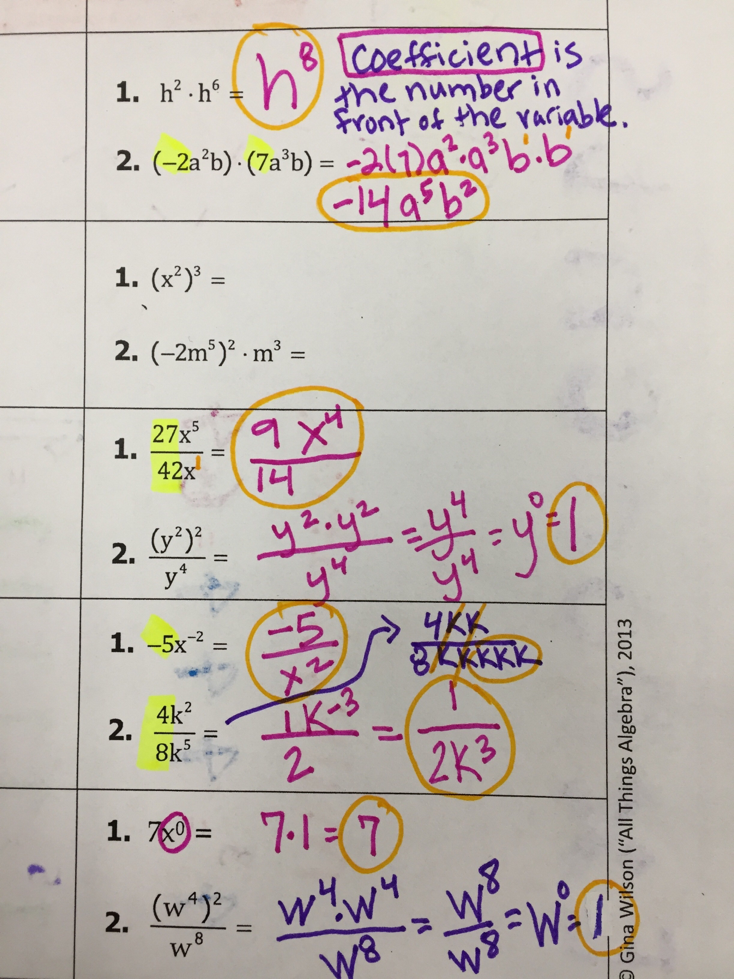 1. h² · h⁶ = h⁸
Coefficient is
the number in
front of the variable.
2. (−2a²b) · (7a³b) = -2(7)a²·a³b¹·b¹
-14a⁵b²
1. (x²)³ =
2. (−2m⁵)² · m³ =
1. 27x⁵/42x¹ = 9x⁴/14
2. (y²)²/y⁴ = y²·y²/y⁴ = y⁴/y⁴ = y⁰ = 1
1. −5x⁻² = -5/x²
4KK/8KKKKK
2. 4k²/8k⁵ = 1K⁻³/2 = 1/2K³
1. 7x⁰ = 7·1 = 7
2. (w⁴)²/w⁸ = W⁴·W⁴/W⁸ = W⁸/W⁸ = W⁰ = 1
© Gina Wilson (“All Things Algebra”), 2013